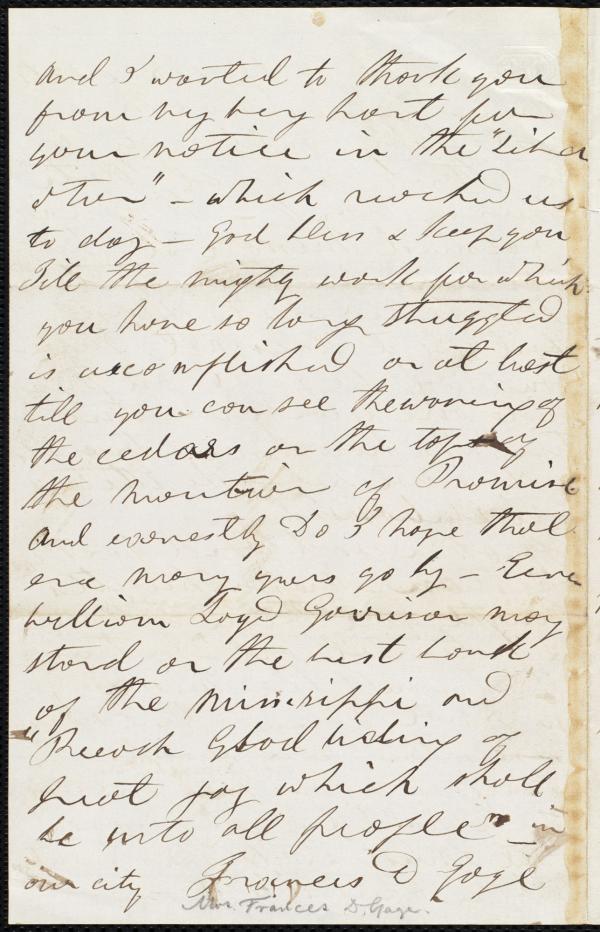 and I wanted to thank you
from my very heart for
your notice in the "Liber
ator" - which reached us
to day - God bless & keep you
Till the mighty work for which
you have so long struggled
is accomplished or at least
till you can see the waving of
the cedars on the tops of
the mountain of Promise
and earnestly Do I hope that
ere many years go by - Even
William Loyd Garrison may
stand on the west bank
of the Mississippi and
"Preach Glad tiding of
great joy which shall
be unto all people" - in
our city Frances D Gage
Mrs. Frances D. Gage.